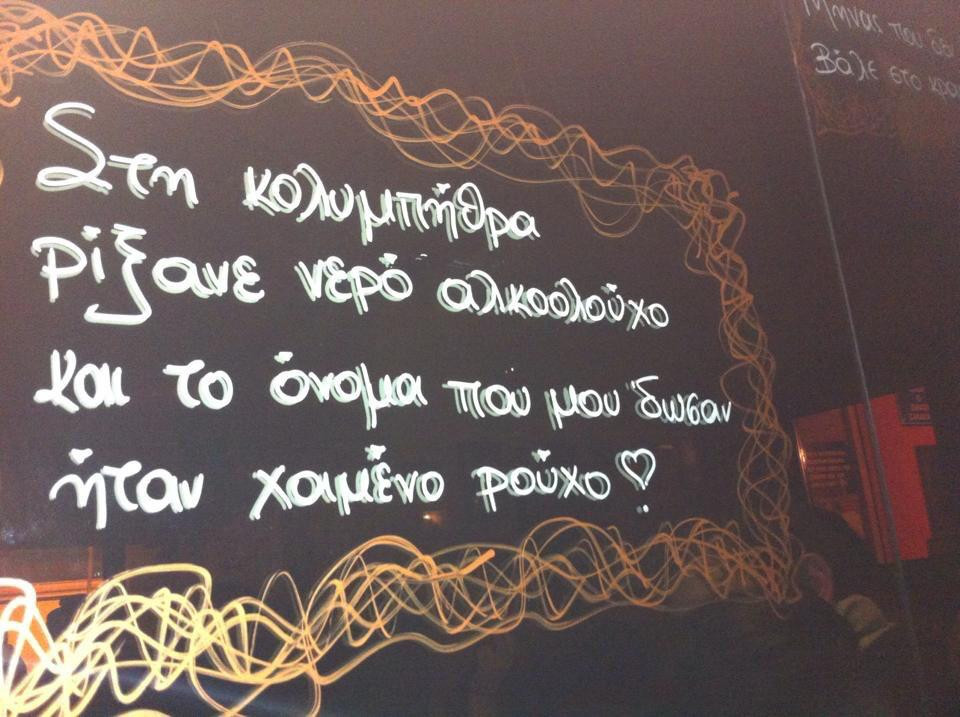 Στη κολυμπήθρα
ρίξανε νερό αλκοολούχο
και το όνομα που μου 'δωσαν
ήταν χαιμένο ρούχο ♡!
Μήνας που δε
Βάλε στο κρα